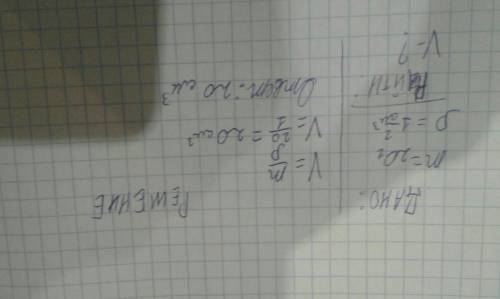 ДАНО:
m = 20г
ρ = 1 г/см³
Найти:
V = ?
РЕШЕНИЕ
V = m/ρ
V = 20/1 = 20 см³
Ответ: 20 см³